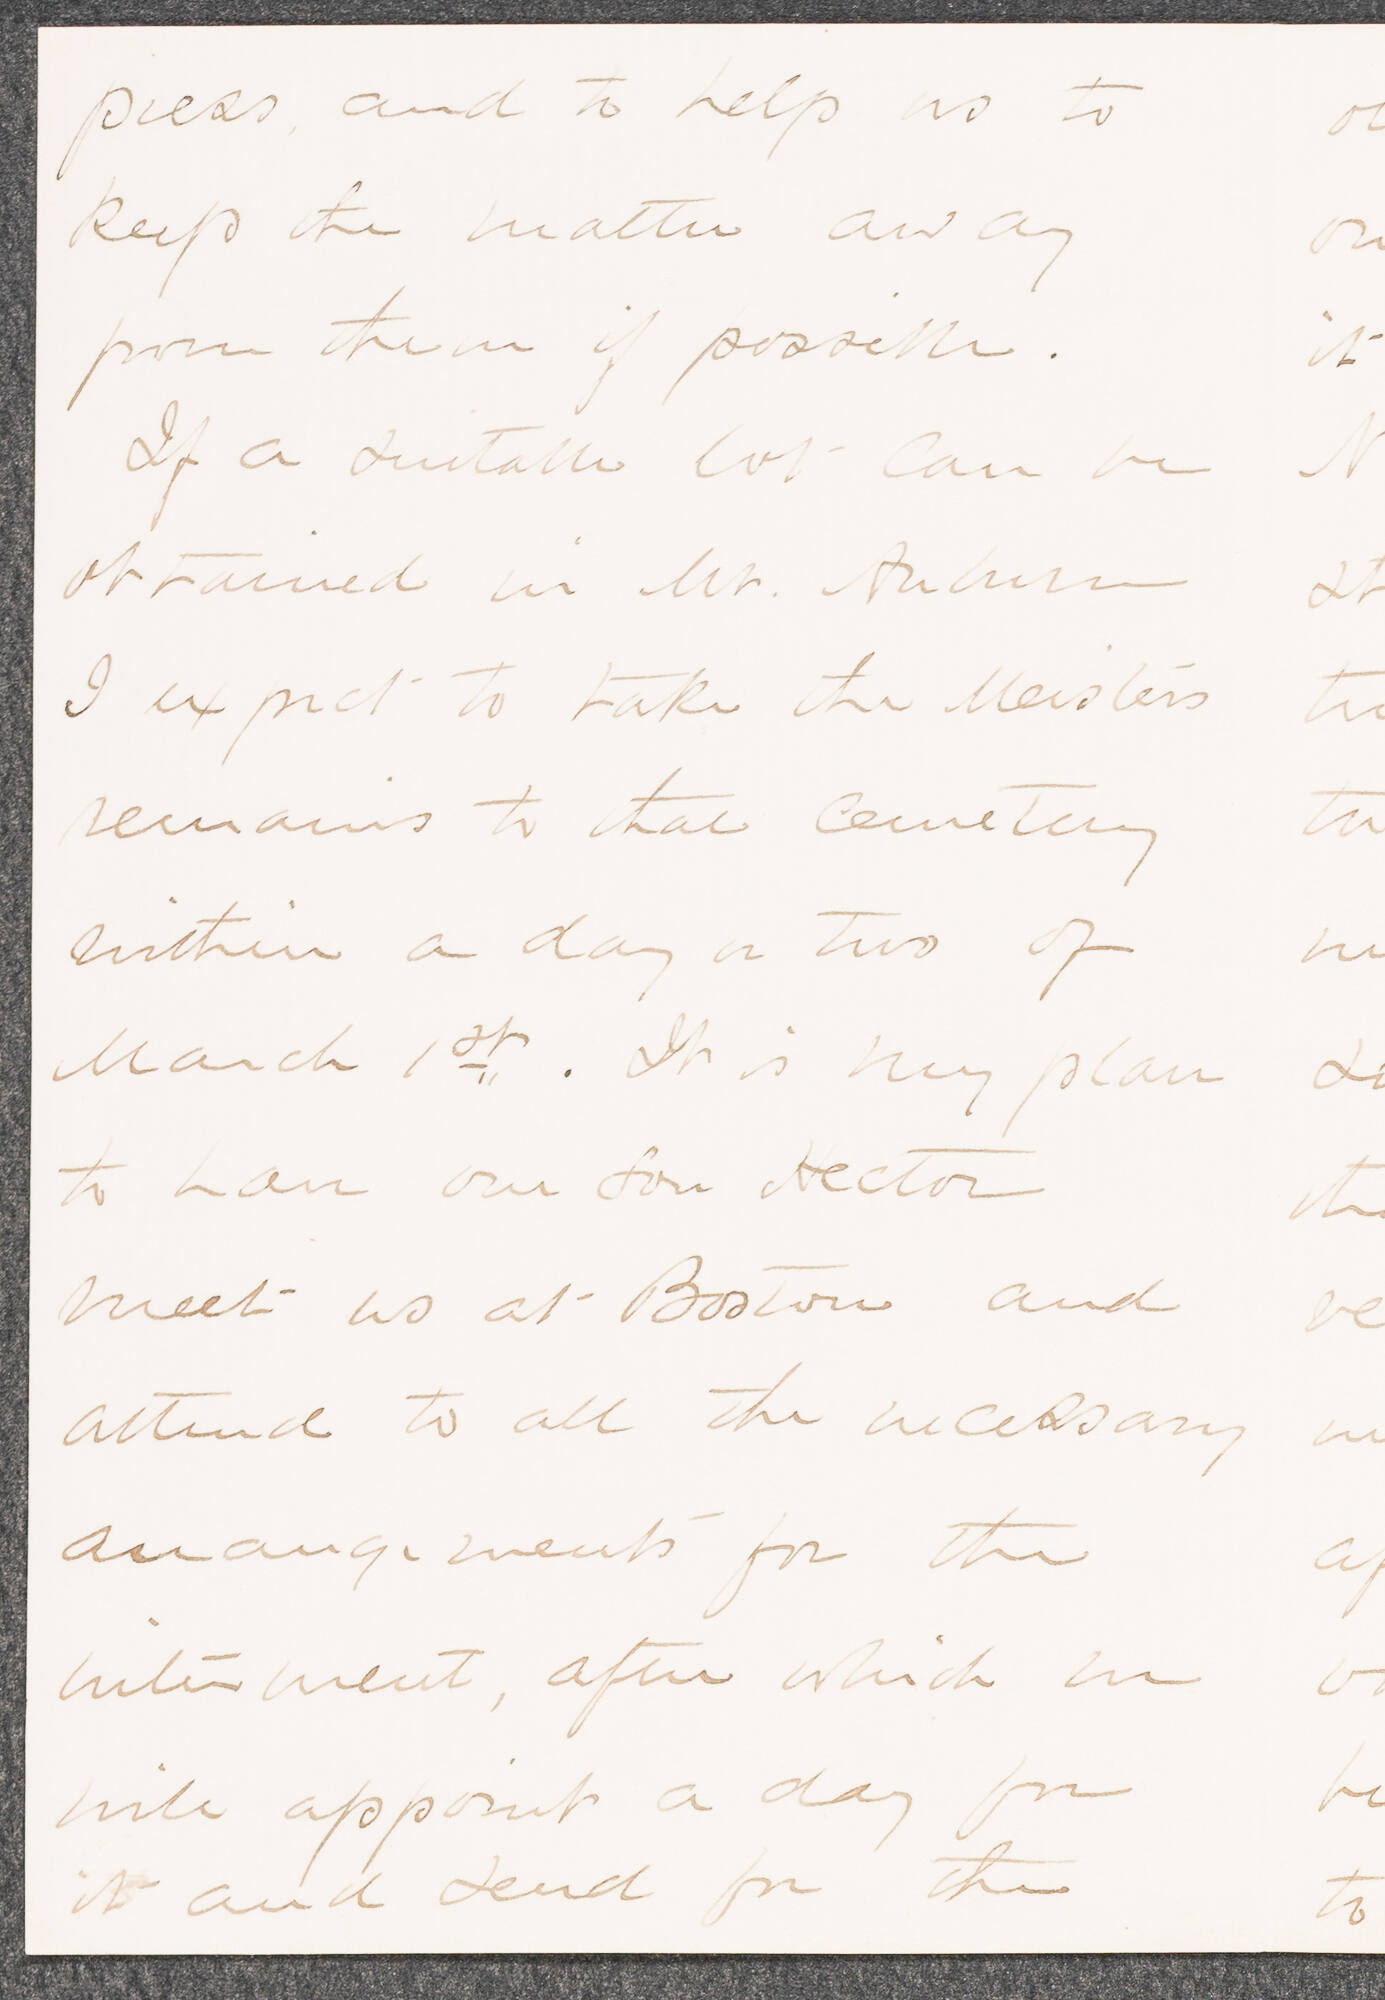 press, and to help us to
keep the matter away
from them if possible.
If a suitable lot can be
obtained in Mt. Auburn
I expect to take the Meisters
remains to that cemetery
within a day or two of
March 1st. It is my plan
to have our son Hector
meet us at Boston and
attend to all the necessary
arrangements for the
interment, after which we
will appoint a day for
it and send for the